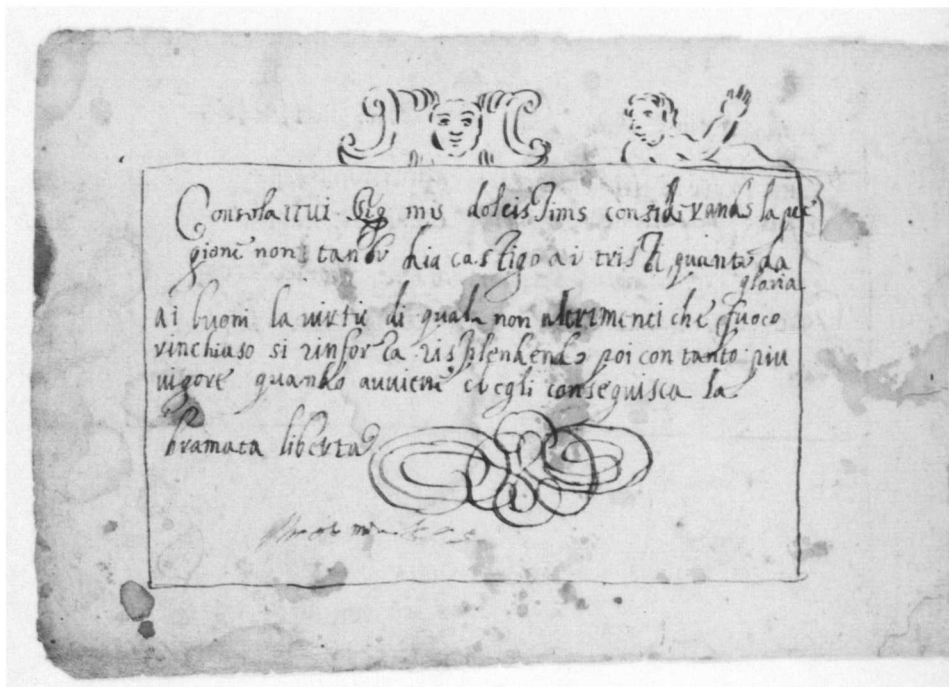 Consolativi Sig mio dolcissimo considerando la pre
gione non tanto dia castigo ai tristi, quanto da
gloria
ai buoni la virtù di quali non altrimenti che fuoco
rinchiuso si rinforza risplendendo poi con tanto più
vigore quando avviene ch'egli conseguisca la
bramata libertà